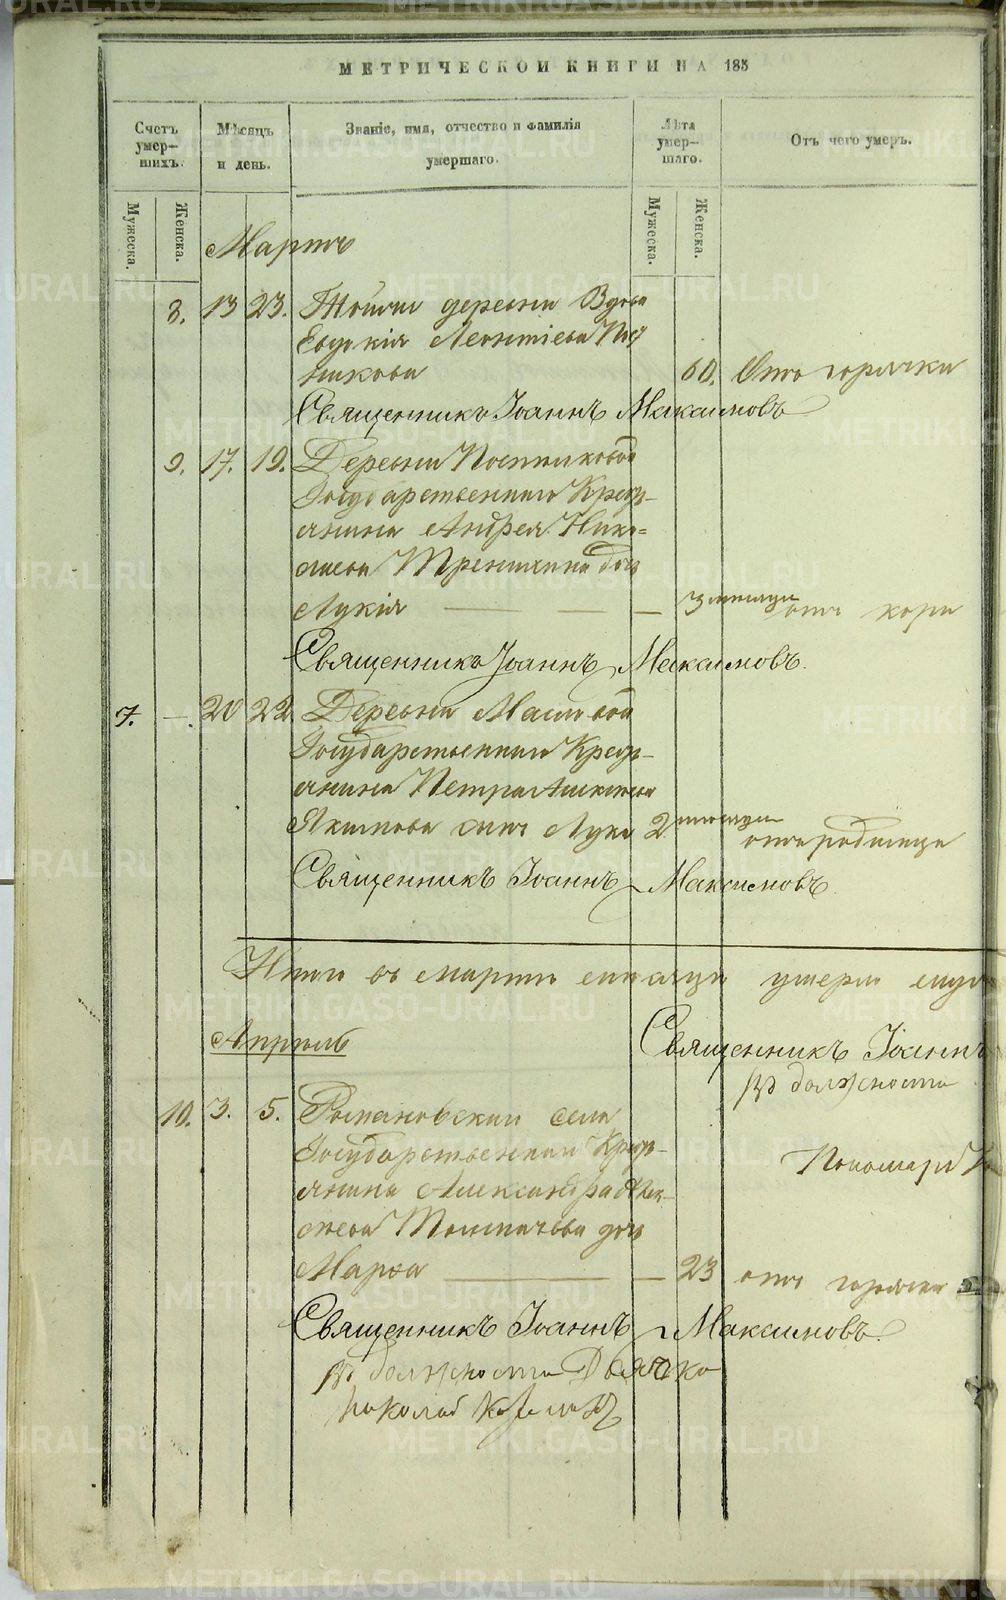 МЕТРИЧЕСКОЙ КНИГИ НА 185
Счетъ умер-шихъ.
Мѣсяцъ и день.
Званіе, имя, отчество и фамилія умершаго.
Лѣта умер-шаго.
Отъ чего умеръ.
Мужеска.
Женска.
Мужеска.
Женска.
Мартъ
8. 13 23. деревни Вдова
Евдокія Леонтіева
60. Отъ горячки
Священникъ Іоаннъ Максимовъ
9. 17. 19. Деревни Постниковой
Государственнаго Кресть-
янина Андрея Нико-
лаева дочь
Лукія 3 месяца отъ кори
Священникъ Іоаннъ Максимовъ.
7. — 20 22 Деревни
Государственнаго Кресть-
янина Петра
Якимова сынъ Лука 2 месяца
отъ родимца
Священникъ Іоаннъ Максимовъ
Итого въ мартѣ месяцѣ умерло
Апрѣль
Священникъ Іоаннъ
въ должности
10. 3. 5. Романовскаго села
Государственнаго Кресть-
янина Александра
дочь
Пономаря
Марѳа 23 отъ горячки
Священникъ Іоаннъ Максимовъ.
въ должности Дьячка
Николай
METRIKI.GASO-URAL.RU